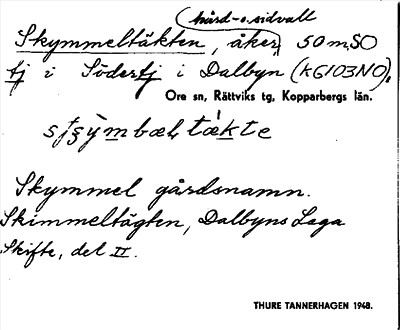 hård- o. sidvall
Skymmeltäkten, åker, 50 m SO
tj i Södertj i Dalbyn (KG103NO).
Ore sn, Rättviks tg, Kopparbergs län.
Skymmel gårdsnamn.
Skimmeltägten, Dalbyns Laga
Skifte, del II.
THURE TANNERHAGEN 1948.